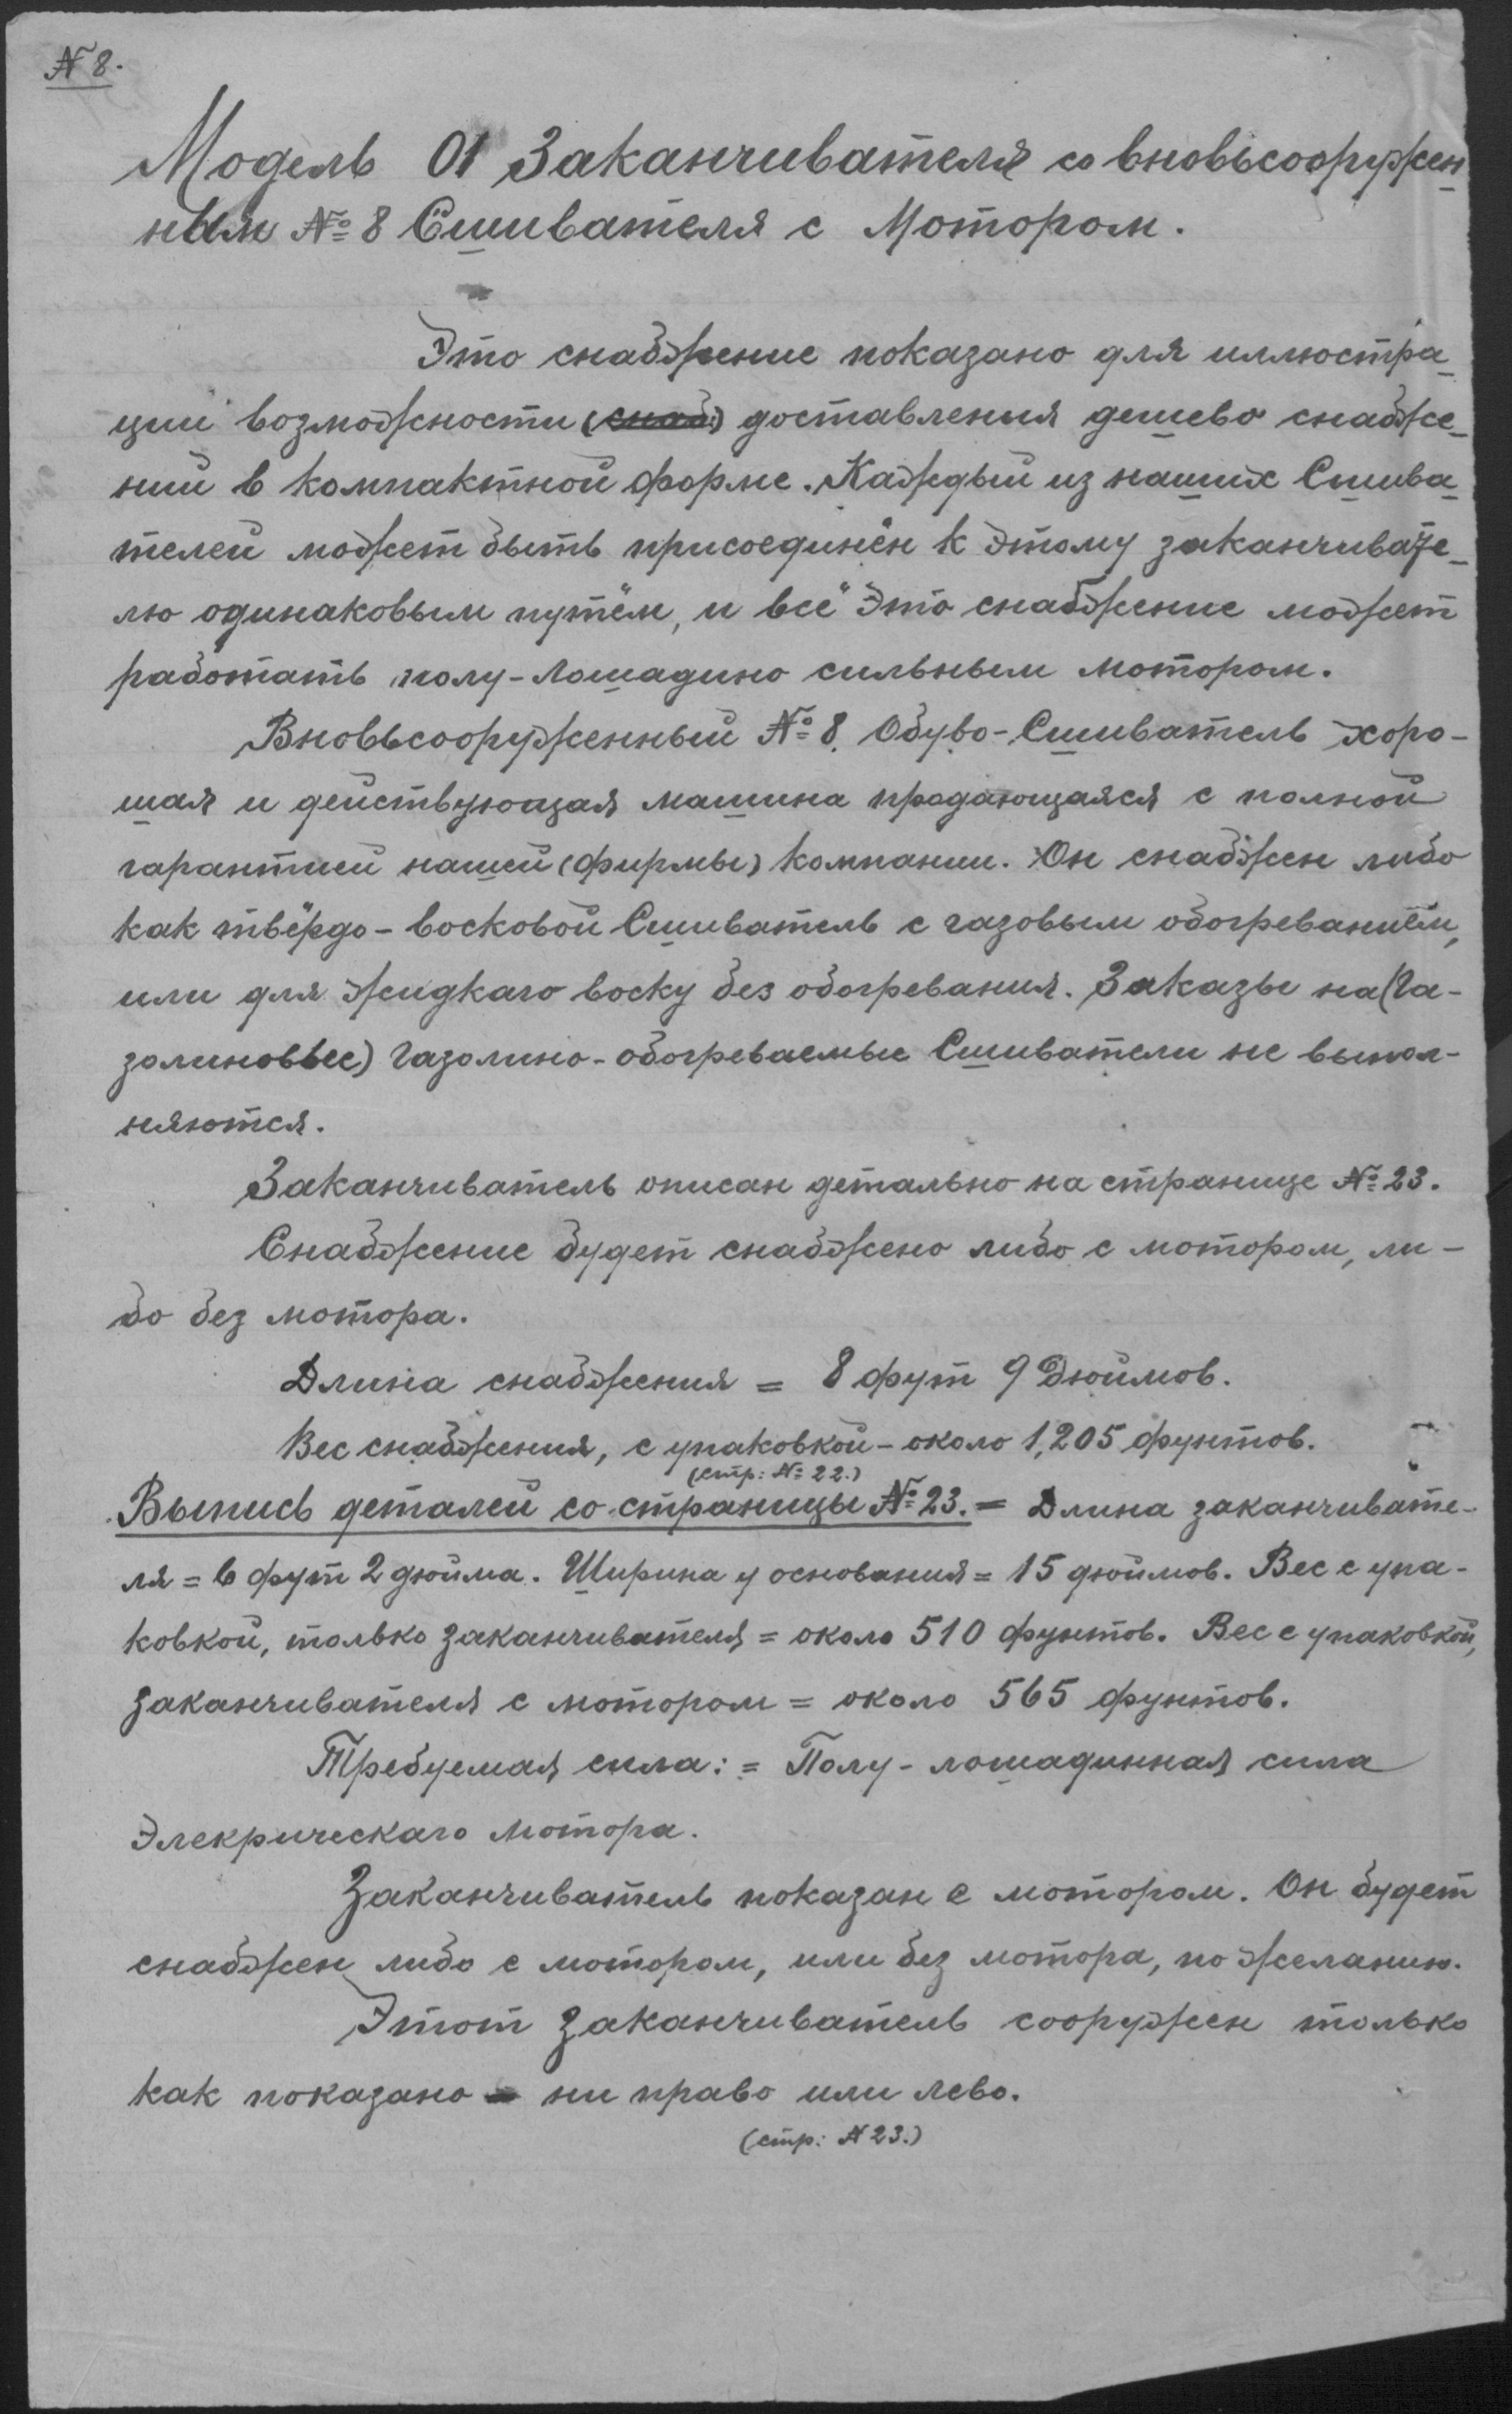 № 8.
Модель 01 Заканчивателя со вновьсооружен-
ным № 8 Сшивателя с Мотором.
Это снабжение показано для иллюстра-
ции возможности (снаб:) доставления дешево снабже-
ний в компактной форме. Каждый из наших Сшива-
телей может быть присоединён к этому заканчивате-
лю одинаковым путём, и всё это снабжение может
работать полу-лошадино сильным мотором.
Вновьсооруженный № 8. Обуво-Сшиватель хоро-
шая и действующая машина продающаяся с полной
гарантией нашей (фирмы) компании. Он снабжен либо
как твёрдо-восковой Сшиватель с газовым обогреваниём,
или для жидкаго воску без обогревания. Заказы на (Га-
золиновые) Газолино-обогреваемые Сшиватели не выпол-
няются.
Заканчиватель описан детально на странице № 23.
Снабжение будет снабжено либо с мотором, ли-
бо без мотора.
Длина снабжения = 8 фут 9 Дюймов.
Вес снабжения, с упаковкой - около 1,205 фунтов.
(стр: № 22.)
Выпись деталей со страницы № 23. = Длина заканчивате-
ля = 6 фут 2 дюйма. Ширина у основания = 15 дюймов. Вес с упа-
ковкой, только заканчивателя = около 510 фунтов. Вес с упаковкой,
заканчивателя с мотором = около 565 фунтов.
Требуемая сила: = Полу-лошадинная сила
Элекрическаго мотора.
Заканчиватель показан с мотором. Он будет
снабжен либо с мотором, или без мотора, по желанию.
Этот заканчиватель сооружен только
как показано - ни право или лево.
(стр: № 23.)